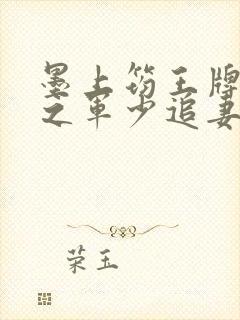 墨上筠王牌
之军少追妻
荣玉